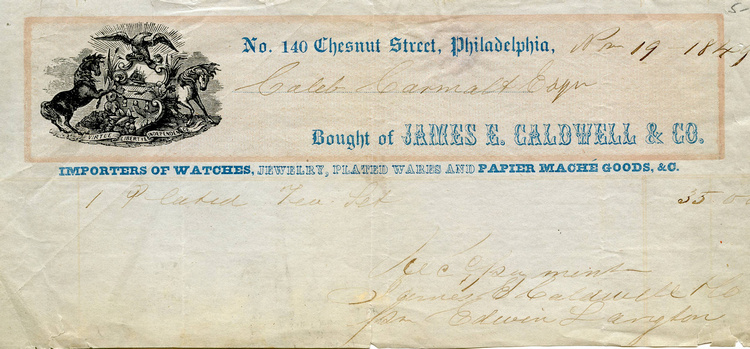 No. 140 Chesnut Street, Philadelphia, Nov 19 184
Caleb Carmalt Esqr
Bought of JAMES E. CALDWELL & CO.
VIRTUE LIBERTY INDEPENDENCE
IMPORTERS OF WATCHES, JEWELRY, PLATED WARES AND PAPIER MACHÉ GOODS, &C.
1 Plated Tea Set 35 00
Rec payment
James E Caldwell & Co
per Edwin Langton